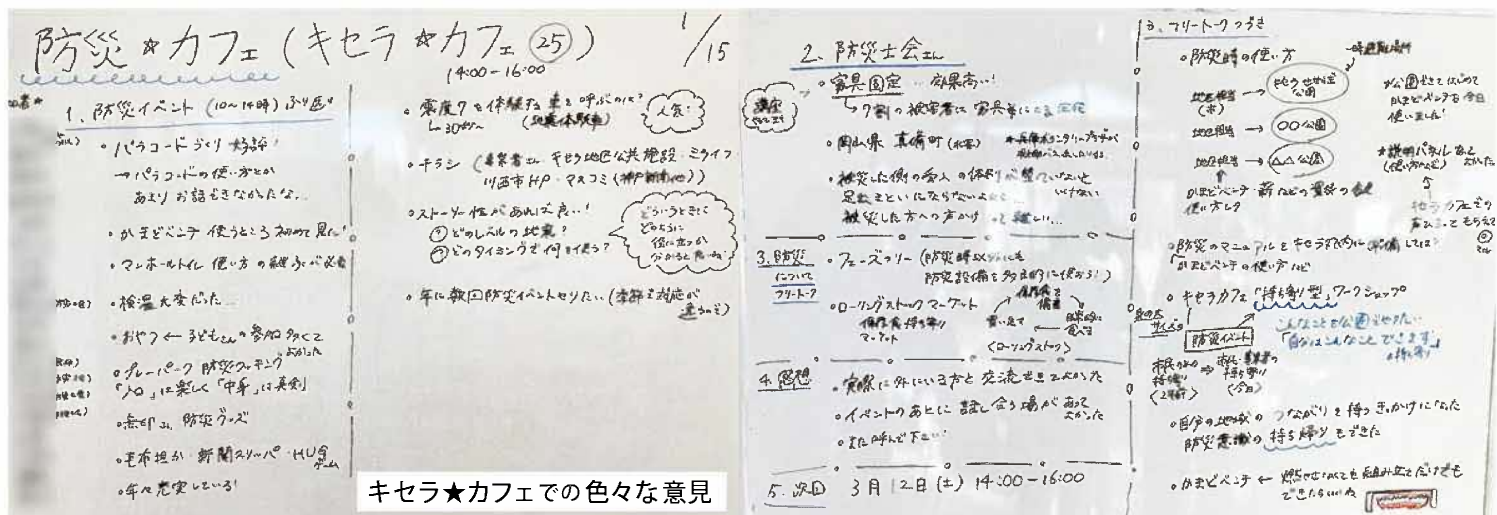 防災☆カフェ(キセラ☆カフェ㉕) 1/15
14:00-16:00
1. 防災イベント(10~14時)ふり返り
・パラコードづくり 好評!
→パラコードの使い方とか
あまりお話できなかったな…
・かまどベンチ 使うところ初めて見た!
・マンホールトイレ 使い方の継承が必要
・検温大変だった…
・おやつ ← 子どもさんの参加多くて
よかった
・プレーパーク 防災クッキング
「入口」は楽しく「中身」は真剣
・無印さん 防災グッズ
・毛布担架・新聞スリッパ・HUG
ゲーム
・年々充実している!
・震度7を体験する車を呼ぶのは?
(地震体験車)
人気!
・チラシ(事業者さん キセラ地区公共施設・ミライフ
川西市HP・マスコミ(神戸新聞他))
・ストーリー性があれば良い!
①どのレベルの地震?
②どのタイミングで何を使う?
どういうときに
どのように
役に立つか
分かると良いね!
・年に数回防災イベントやりたい(季節で対応が
違うので)
キセラ★カフェでの色々な意見
2. 防災士会さん
・家具固定…効果高い!
7割の被害者は家具等による
・岡山県 真備町(水害)
・被災した側の受入の体制が整っていないと
いけない
被災した方への声かけ 難しい…
3. 防災
について
フリートーク
・フェーズフリー(防災時以外にも
防災設備を多目的に使おう!)
・ローリングストックマーケット
保存食持ち寄り
マーケット
保存食を
備蓄
日常的に
食べる
買い足す
<ローリングストック>
4. 感想
・実際に外にいる方と交流できてよかった
・イベントのあとに話し合う場があって
よかった
・また呼んで下さい!
5. 次回 3月12日(土) 14:00-16:00
3. フリートークつづき
・防災時の使い方
一時避難場所
地区担当
(市)
→ キセラせせらぎ
公園
地区担当 → ○○公園
地区担当 → △△公園
かまどベンチ・薪などの資源の
使い方も
公園できてはじめて
かまどベンチを今日
使いました!
★説明パネルなど
(使い方など) よかった
キセラカフェでの
声
・防災のマニュアルをキセラ院内に準備しては?
かまどベンチの使い方など
・キセラカフェ「持ち寄り型」ワークショップ
防災イベント
こんなことを公園でやりたい
「自分はこんなことできます」
の持ち寄り
市民のみの
持ち寄り
<2年前>
⇒ 市民・事業者の
持ち寄り
<今日>
・自分の地域のつながりを持つきっかけになった
防災意識の持ち帰りもできた
・かまどベンチ ← 燃やせなくても組み立てだけでも
できたらいいね